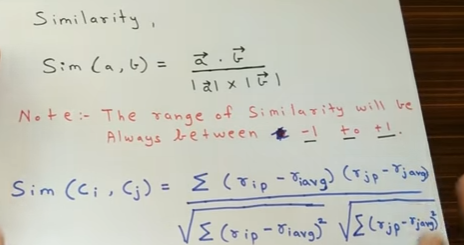 Similarity,
Sim (a, b) = a⃗ · b⃗ / |a⃗| × |b⃗|
Note:- The range of Similarity will be
Always between -1 to +1.
Sim (Ci, Cj) = Σ (rip - riavg) (rjp - rjavg) / √Σ (rip - riavg)² √Σ (rjp - rjavg)²